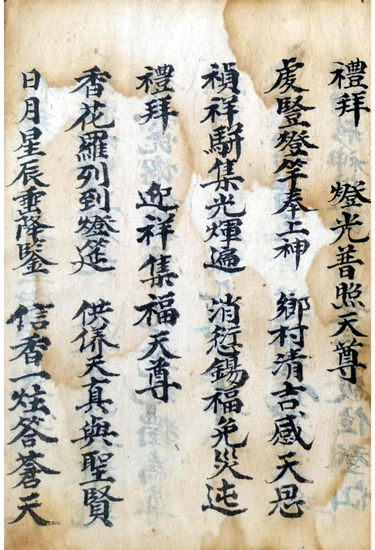 禮拜 燈光普照天尊
虔豎燈竿奉上神 鄉村清吉感天恩
禎祥駢集光煇遍 消愆錫福免災迍
禮拜 迎祥集福天尊
香花羅列到燈筵 供天真與聖賢
日月星辰垂降鑒 信香一炷答蒼天